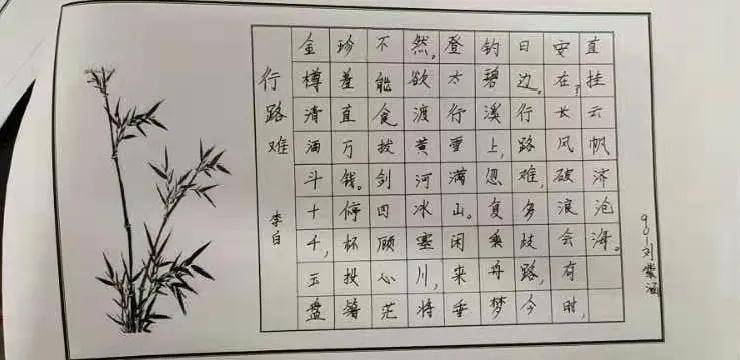 行路难
李白
金樽清酒斗十千,玉盘
珍羞直万钱。停杯投箸
不能食拔剑四顾心茫
然。欲渡黄河冰塞川,将
登太行雪满山。闲来垂
钓碧溪上,忽复乘舟梦
日边。行路难,多歧路,今
安在?长风破浪会有时,
直挂云帆济沧海。
901刘涵